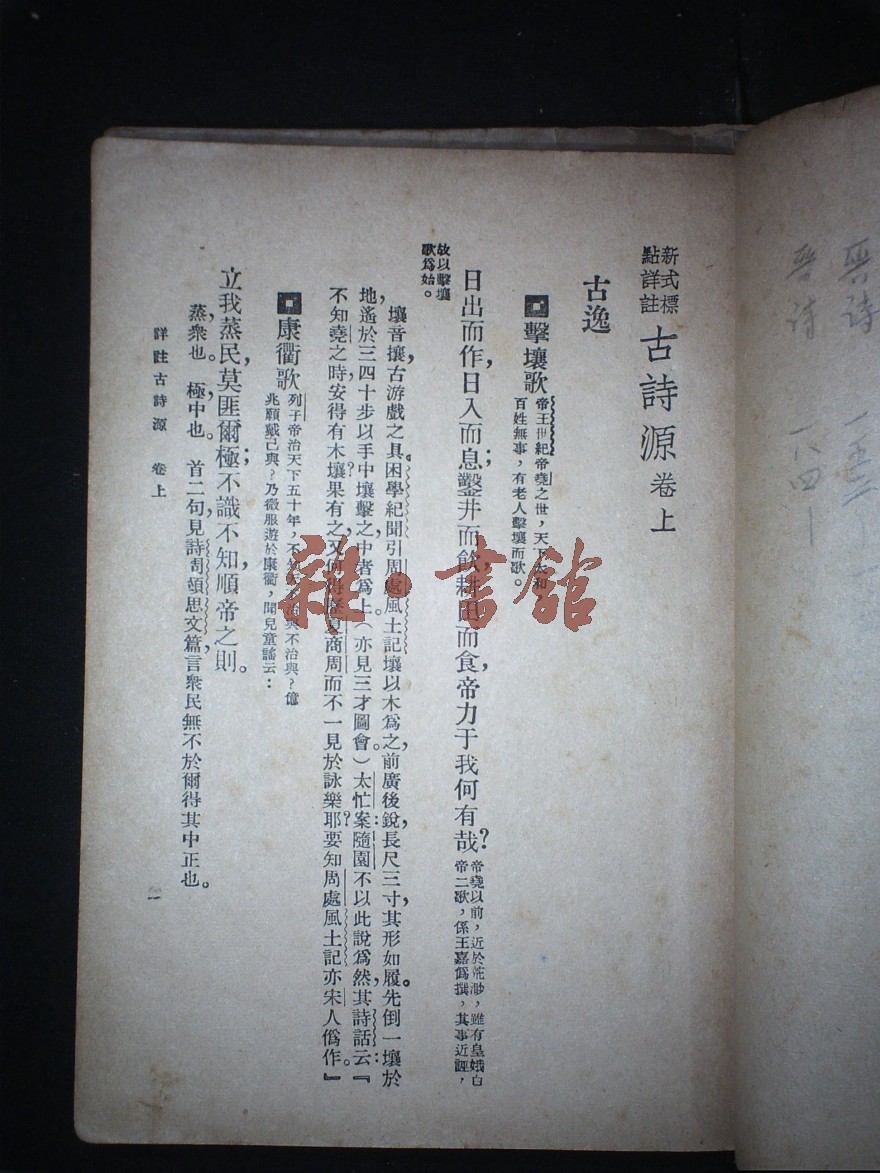 新式標
點詳註
古詩源 卷上
古逸
擊壤歌
帝王世紀帝堯之世，天下太和，
百姓無事，有老人擊壤而歌。
日出而作，日入而息；鑿井而飲，耕田而食，帝力于我何有哉？
帝堯以前，近於荒渺，雖有皇娥白
帝二歌，係王嘉僞撰，其事近誣，
故以擊壤
歌爲始。
壤音攘，古游戲之具。困學紀聞引周處風土記壤以木爲之，前廣後銳，長尺三寸，其形如履。先倒一壤於
地，遙於三四十步，以手中壤擊之，中者爲上。（亦見三才圖會）太忙案：隨園不以此說爲然，其詩話云：『
不知堯之時，安得有木壤？果有之，又何得歷夏商周而不一見於詠樂耶？要知周處風土記亦宋人僞作。』
康衢歌
列子帝治天下五十年，不知天下治與不治與？億
兆願戴己與？乃微服遊於康衢，聞兒童謠云：
立我蒸民，莫匪爾極；不識不知，順帝之則。
蒸，衆也。極，中也。首二句見詩周頌思文篇，言衆民無不於爾得其中正也。
詳註古詩源 卷上
一
雜·書館
晉詩